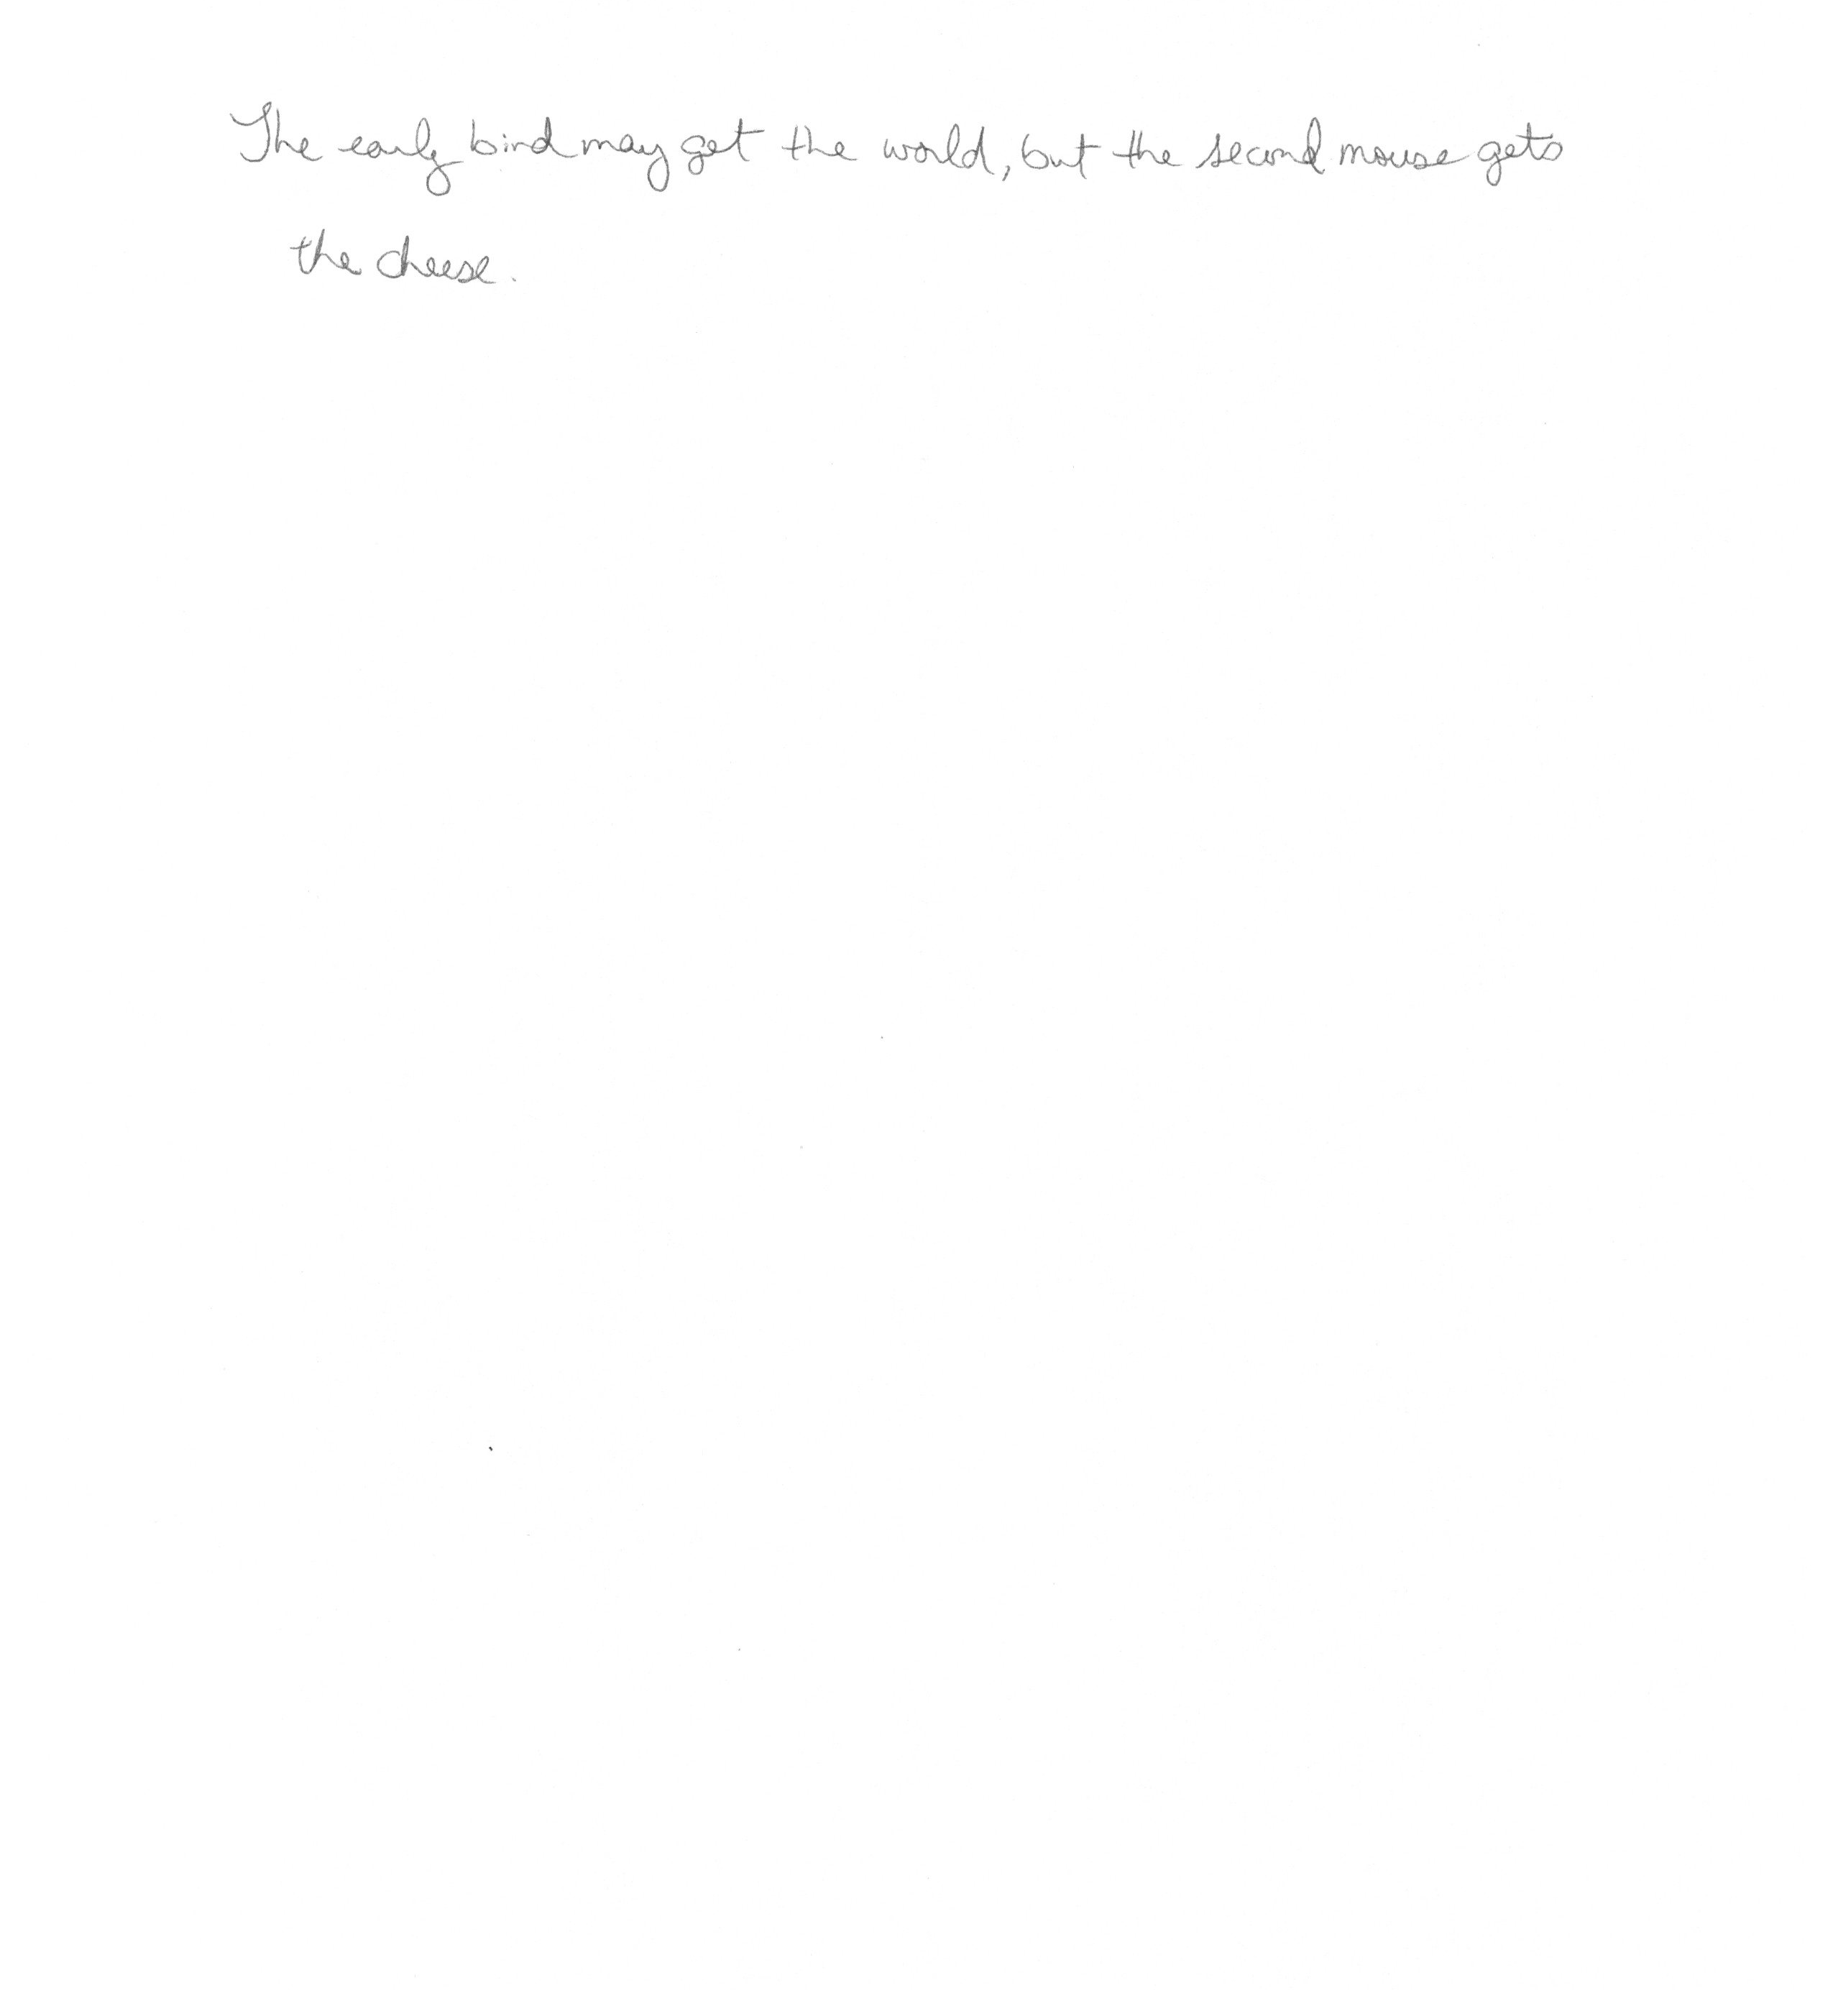 The early bird may get the world, but the second mouse gets
the cheese.